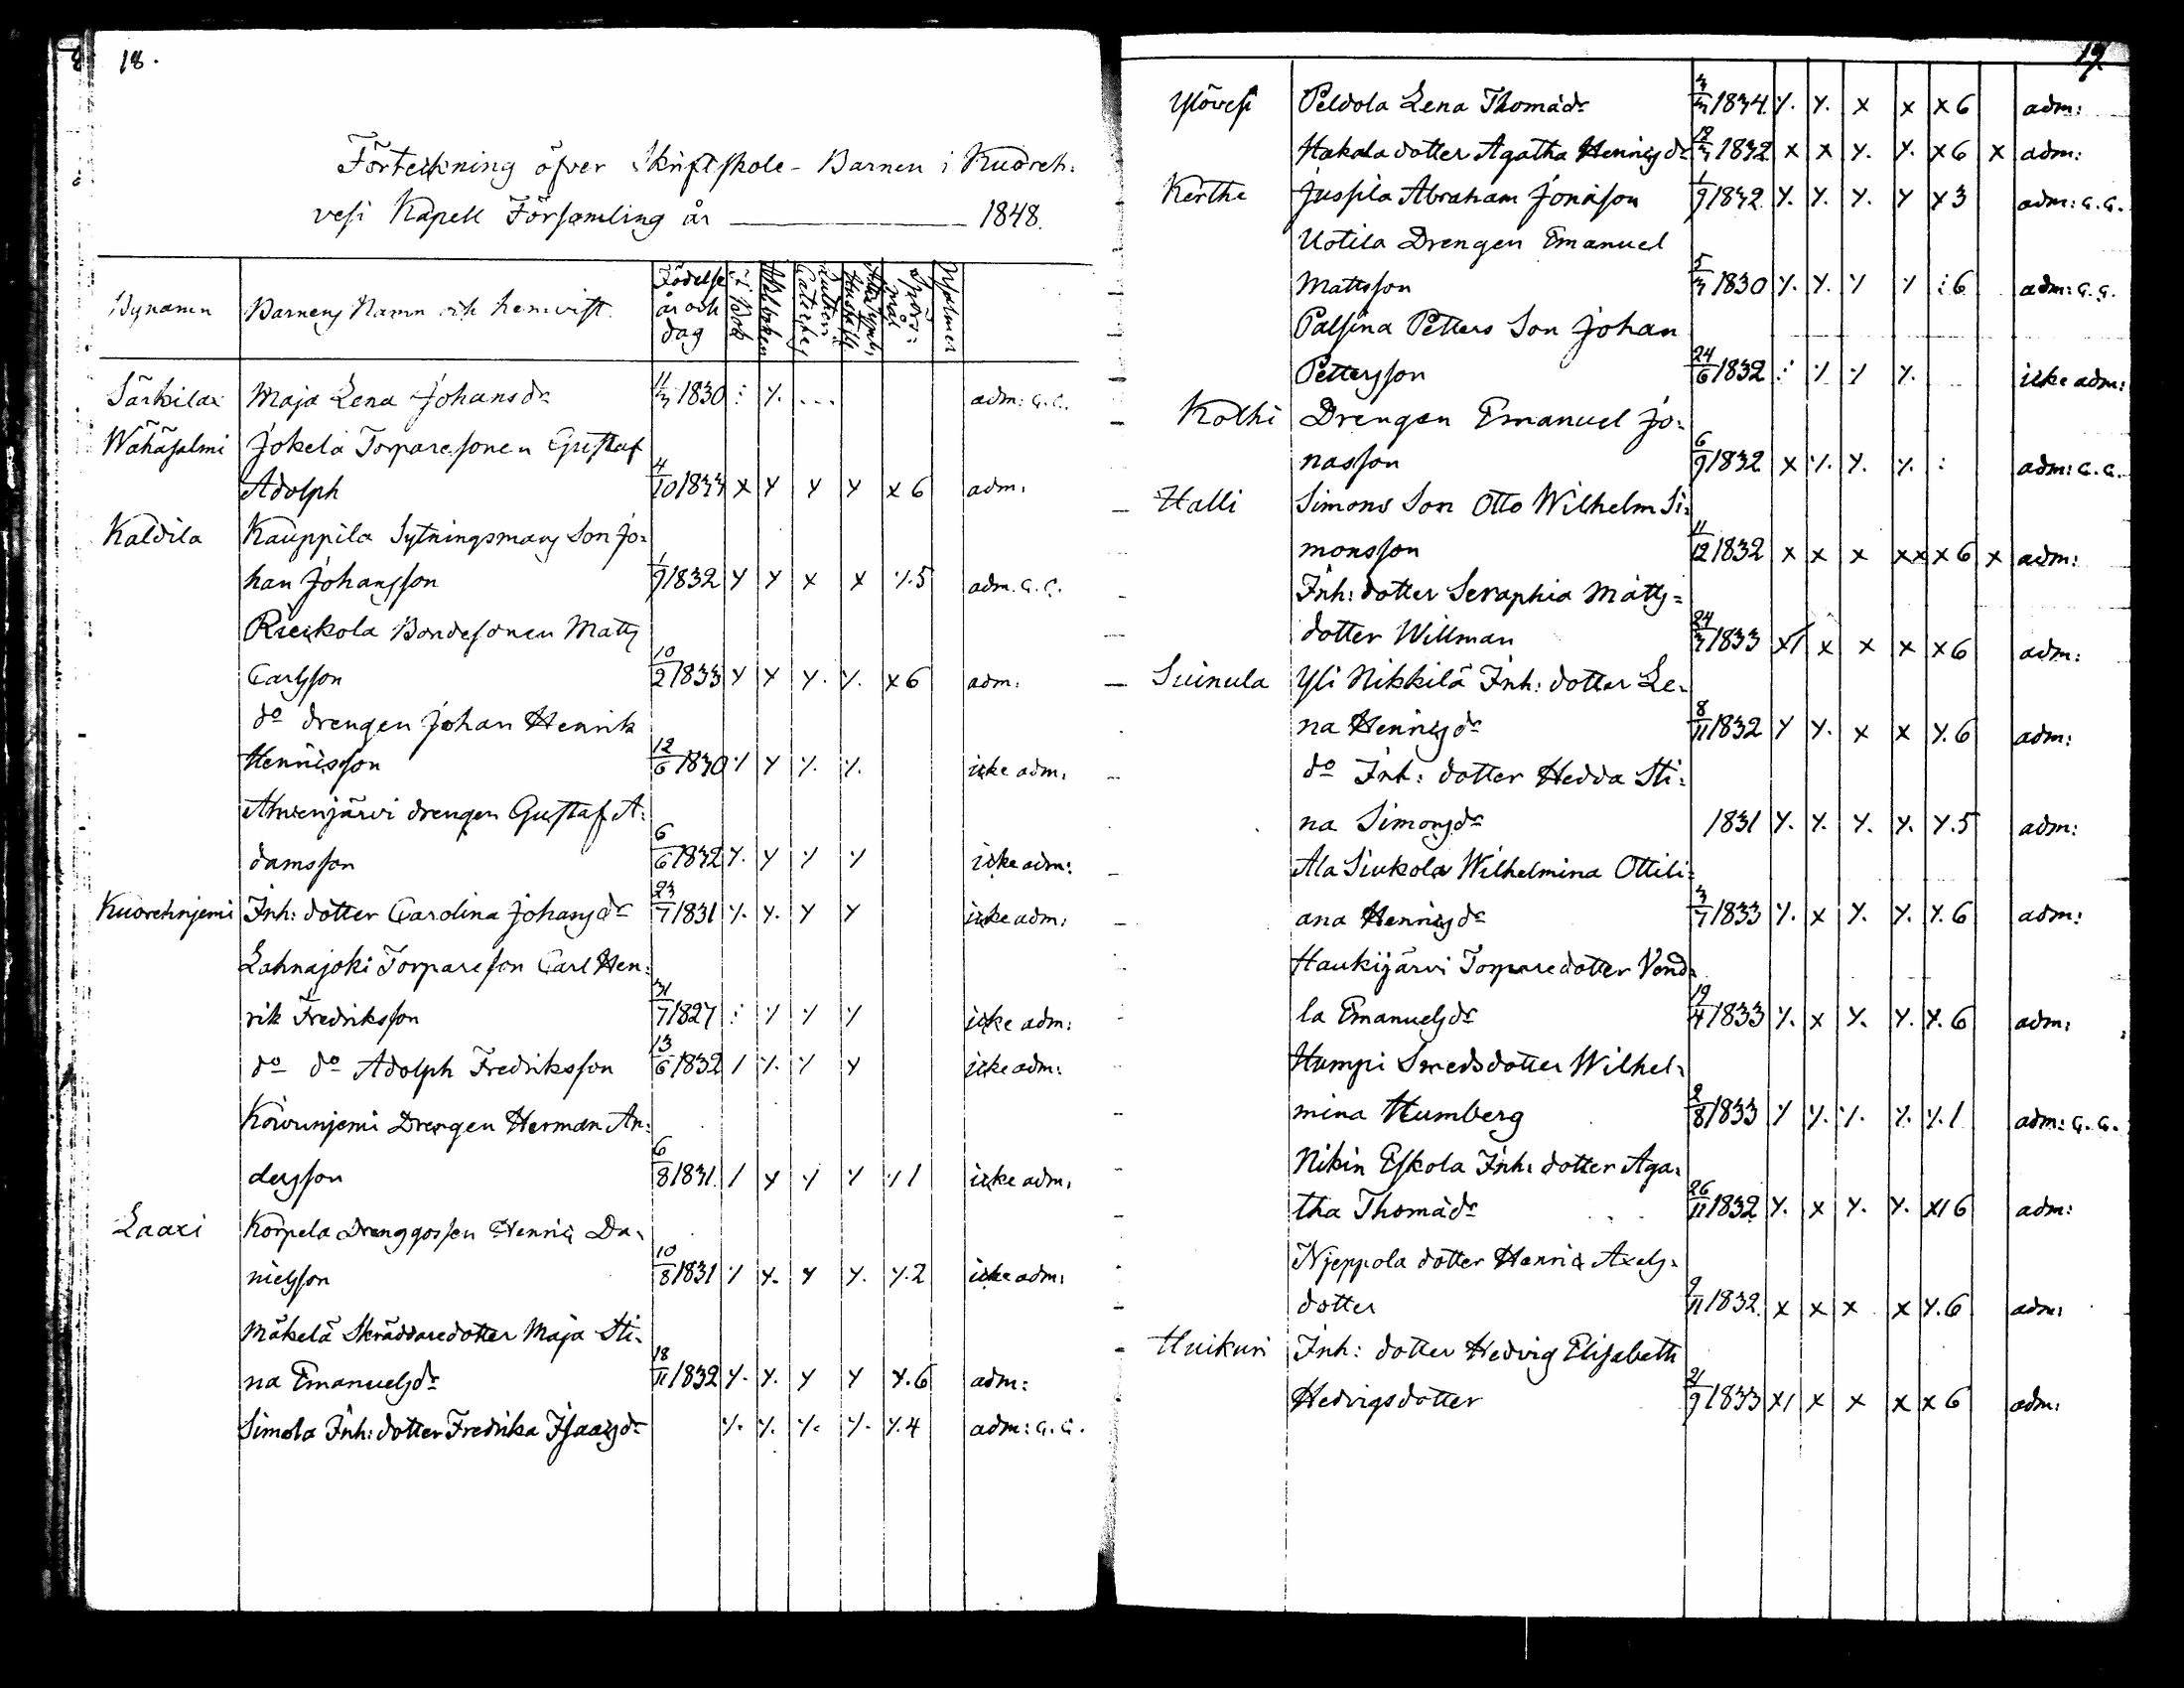 18.
Förteckning öfver Skriftskole-Barnen i Kuoreh:
vesi Kapell Församling år — 1848.
Bynamn Barnens Namn och hemvist. Födelse år och dag i Bok Abcboken Lutheri Cateches Ath. Symb. Hustafl. Spörs: mål Psalmer
Särkilax Maja Lena Johansdr 11/3 1830 : ٪. ... adm: c.c.
Wähäsalmi Jokela Torparesonen Gustaf
Adolph 4/10 1833 x y y y x 6 adm:
Kaldila Kauppila Sytningsmans Son Jo=
han Johansson 1/9 1832 y y x x ٪.5 adm. c.c.
Rieskola Bondesonen Matts
Carlsson 10/2 1833 y y y. ٪. x 6 adm:
do drengen Johan Henrik
Henricsson 12/6 1830 ٪ y ٪. ٪. icke adm:
Ahvenjärvi drengen Gustaf A=
damsson 6/6 1832 y. y y y icke adm:
Kuorehnjemi Inh: dotter Carolina Johansdr 23/7 1831 ٪. y. y y icke adm:
Lahnajoki Torpareson Carl Hen=
rik Fredriksson 31/7 1827 : ٪ ٪ ٪ icke adm:
do do Adolph Fredriksson 13/6 1832 / ٪. ٪ y icke adm:
Koivunjemi Drengen Herman An=
dersson 6/8 1831. / y ٪ ٪ ٪ 1 icke adm:
Laaxi Korpela Drenggossen Henric Da=
nielsson 10/8 1831 ٪ y. y y. y.2 icke adm:
Mäkelä Skräddaredotter Maja Sti=
na Emanuelsdr 18/11 1832 y. y. y y y.6 adm:
Simola Inh: dotter Fredrika Isaacsdr ٪. ٪. ٪. ٪. ٪.4 adm: c.c.
19.
Ylövesi Peldola Lena Thomædr 3/3 1834. y. y. x x x 6 adm:
Hakala dotter Agatha Henricsdr 12/3 1832 x x y. y. x 6 x adm:
Kerthe Jussila Abraham Jonasson 1/9 1832 y. y. y. y y 3 adm: c.c.
Uotila Drengen Emanuel
Mattsson 5/3 1830 y. y. y y : 6 adm: c.c.
Palsina Petters Son Johan
Pettersson 24/6 1832 : ٪ ٪ ٪. icke adm:
Kolhi Drengen Emanuel Jo=
nasson 6/9 1832 x ٪. y. ٪. : adm: c.c.
Halli Simons Son Otto Wilhelm Si=
monsson 11/12 1832 x x x xx x 6 x adm:
Inh: dotter Seraphia Matts=
dotter Willman 24/3 1833 x/ x x x x 6 adm:
Suinula Yli Nikkilä Inh: dotter Le=
na Henricsdr 8/11 1832 y y. x x y.6 adm:
do Inh: dotter Hedda Sti=
na Simonsdr 1831 y. y. y. y. y.5 adm:
Ala Siukola Wilhelmina Ottili=
ana Henricsdr 3/7 1833 y. x y. y. y.6 adm:
Haukijärvi Torparedotter Vend=
la Emanuelsdr 19/4 1833 y. x y. y. y.6 adm:
Humpi Smedsdotter Wilhel=
mina Humberg 2/8 1833 y y. ٪. ٪. ٪.1 adm: c.c.
Nikin Eskola Inh: dotter Aga=
tha Thomædr 26/11 1832 y. x y. y. x/ 6 adm:
Njeppola dotter Henrica Axels=
dotter 9/11 1832. x x x x y.6 adm:
Huikuri Inh: dotter Hedvig Elisabeth
Hedvigsdotter 21/9 1833 x/ x x x x 6 adm: